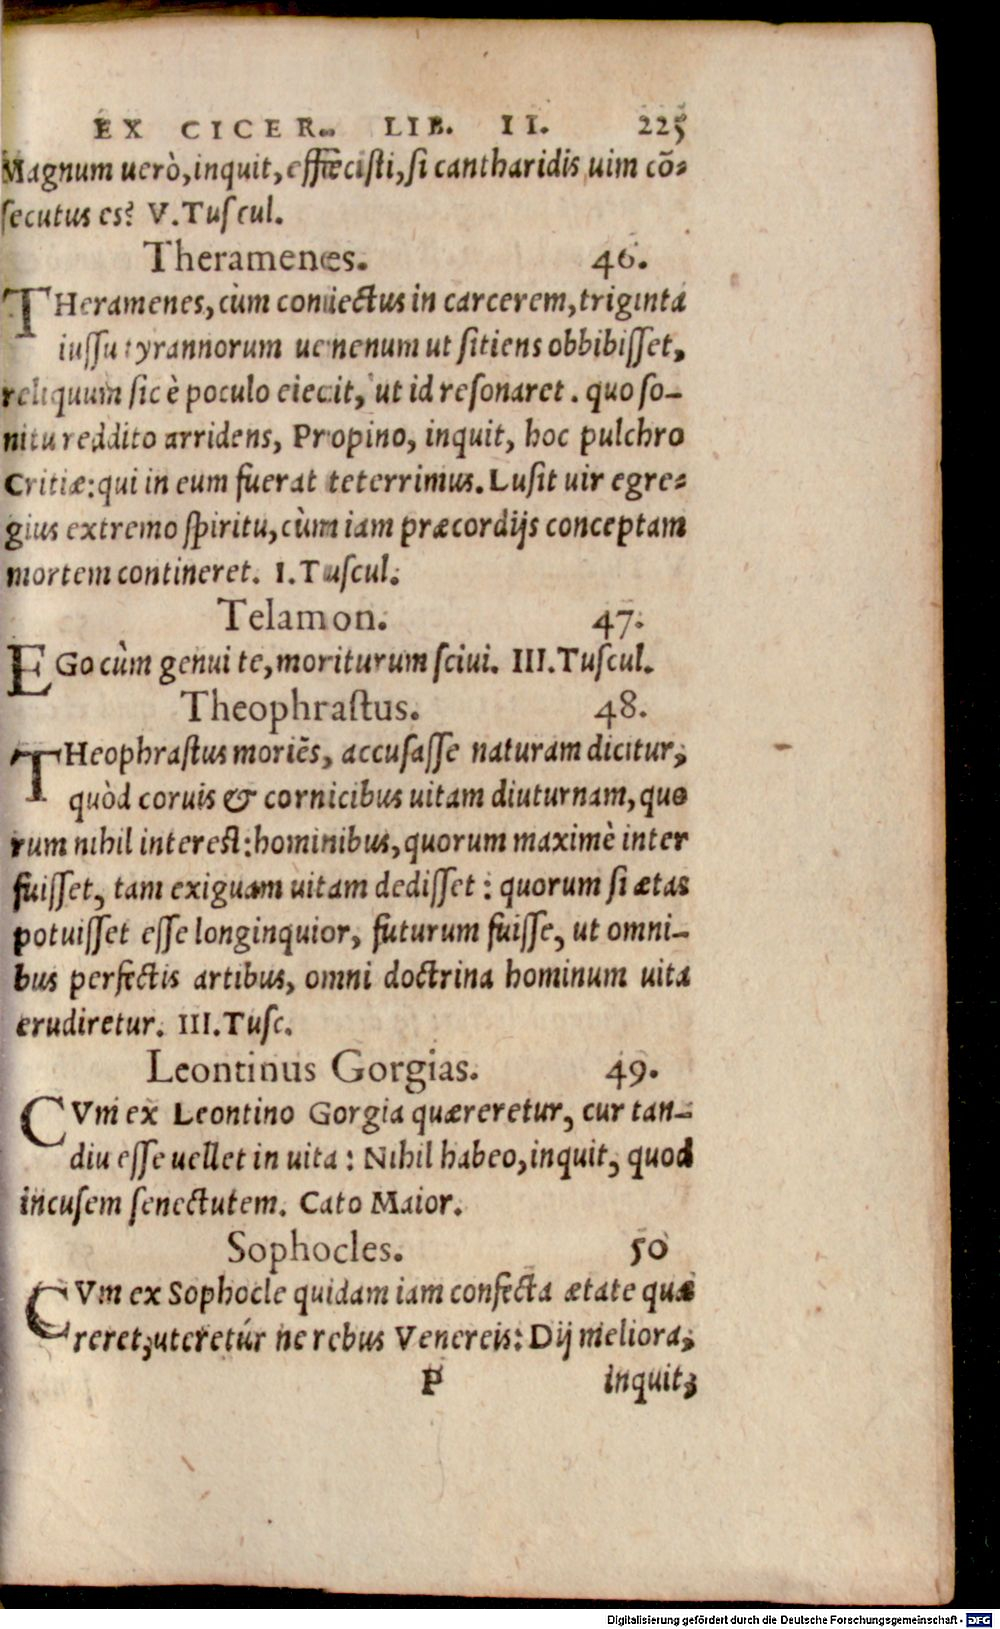 EX CICER. LIB. II. 225
Magnum uerò, inquit, effœcisti, si cantharidis uim cō-
secutus es? V. Tuscul.
Theramenes. 46.
THeramenes, cùm coniectus in carcerem, triginta
iussu tyrannorum uenenum ut sitiens obbibisset,
reliquum sic è poculo eiecit, ut id resonaret. quo so-
nitu reddito arridens, Propino, inquit, hoc pulchro
Critiæ: qui in eum fuerat teterrimus. Lusit uir egre-
gius extremo spiritu, cùm iam præcordijs conceptam
mortem contineret. I. Tuscul.
Telamon. 47.
EGo cùm genui te, moriturum sciui. III. Tuscul.
Theophrastus. 48.
THeophrastus moriēs, accusasse naturam dicitur,
quòd coruis & cornicibus uitam diuturnam, quo
rum nihil interest: hominibus, quorum maximè inter
fuisset, tam exiguam uitam dedisset: quorum si ætas
potuisset esse longinquior, futurum fuisse, ut omni-
bus perfectis artibus, omni doctrina hominum uita
erudiretur. III. Tusc.
Leontinus Gorgias. 49.
CVm ex Leontino Gorgia quæreretur, cur tan-
diu esse uellet in uita: Nihil habeo, inquit, quod
incusem senectutem. Cato Maior.
Sophocles. 50
CVm ex Sophocle quidam iam confecta ætate quæ
reret, uteretúr ne rebus Venereis: Dij meliora,
P inquit,
Digitalisierung gefördert durch die Deutsche Forschungsgemeinschaft - DFG